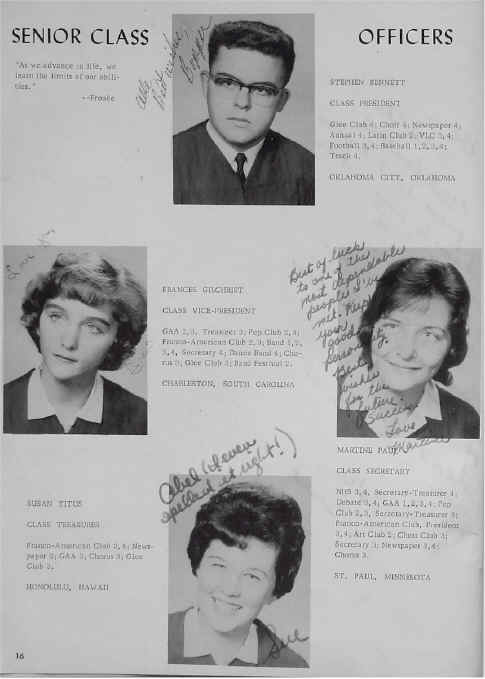 SENIOR CLASS OFFICERS
"As we advance in life, we
learn the limits of our abili-
ties."
--Froude
Abe,
Best wishes,
Booger
STEPHEN BENNETT
CLASS PRESIDENT
Glee Club 4; Choir 4; Newspaper 4;
Annual 4; Latin Club 2; VLC 3,4;
Football 3,4; Baseball 1,2,3,4;
Track 4.
OKLAHOMA CITY, OKLAHOMA
Love ya
FRANCES GILCHRIST
CLASS VICE-PRESIDENT
GAA 2,3, Treasurer 3; Pep Club 2,3;
Franco-American Club 2,3; Band 1,2,
3,4, Secretary 4; Dance Band 4; Cho-
rus 3; Glee Club 3; Band Festival 2.
CHARLESTON, SOUTH CAROLINA
Best of luck
to one of the
most dependable
people I've
met. Keep
your
good
personality.
Best
wishes
for the
future.
Success
Love
Martine
MARTINE PAUL
CLASS SECRETARY
NHS 3,4, Secretary-Treasurer 4;
Debate 3,4; GAA 1,2,3,4; Pep
Club 2,3, Secretary-Treasurer 3;
Franco-American Club, President
3,4; Art Club 2; Chess Club 3;
Secretary 3; Newspaper 3,4;
Chorus 3.
ST. PAUL, MINNESOTA
Abel (I even
spelled it right!)
Sue
SUSAN TITUS
CLASS TREASURER
Franco-American Club 3,4; News-
paper 2; GAA 3; Chorus 3; Glee
Club 3.
HONOLULU, HAWAII
16